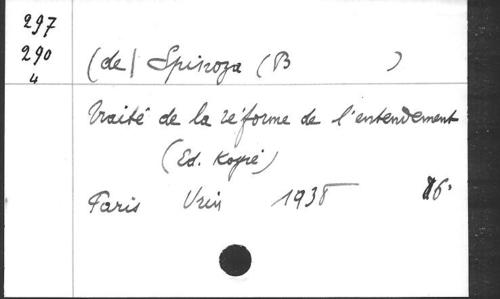 297
290
4
(de) Spinoza (B )
Traité de la réforme de l'entendement
(Ed. Koyré)
Paris Vrin 1938 16°